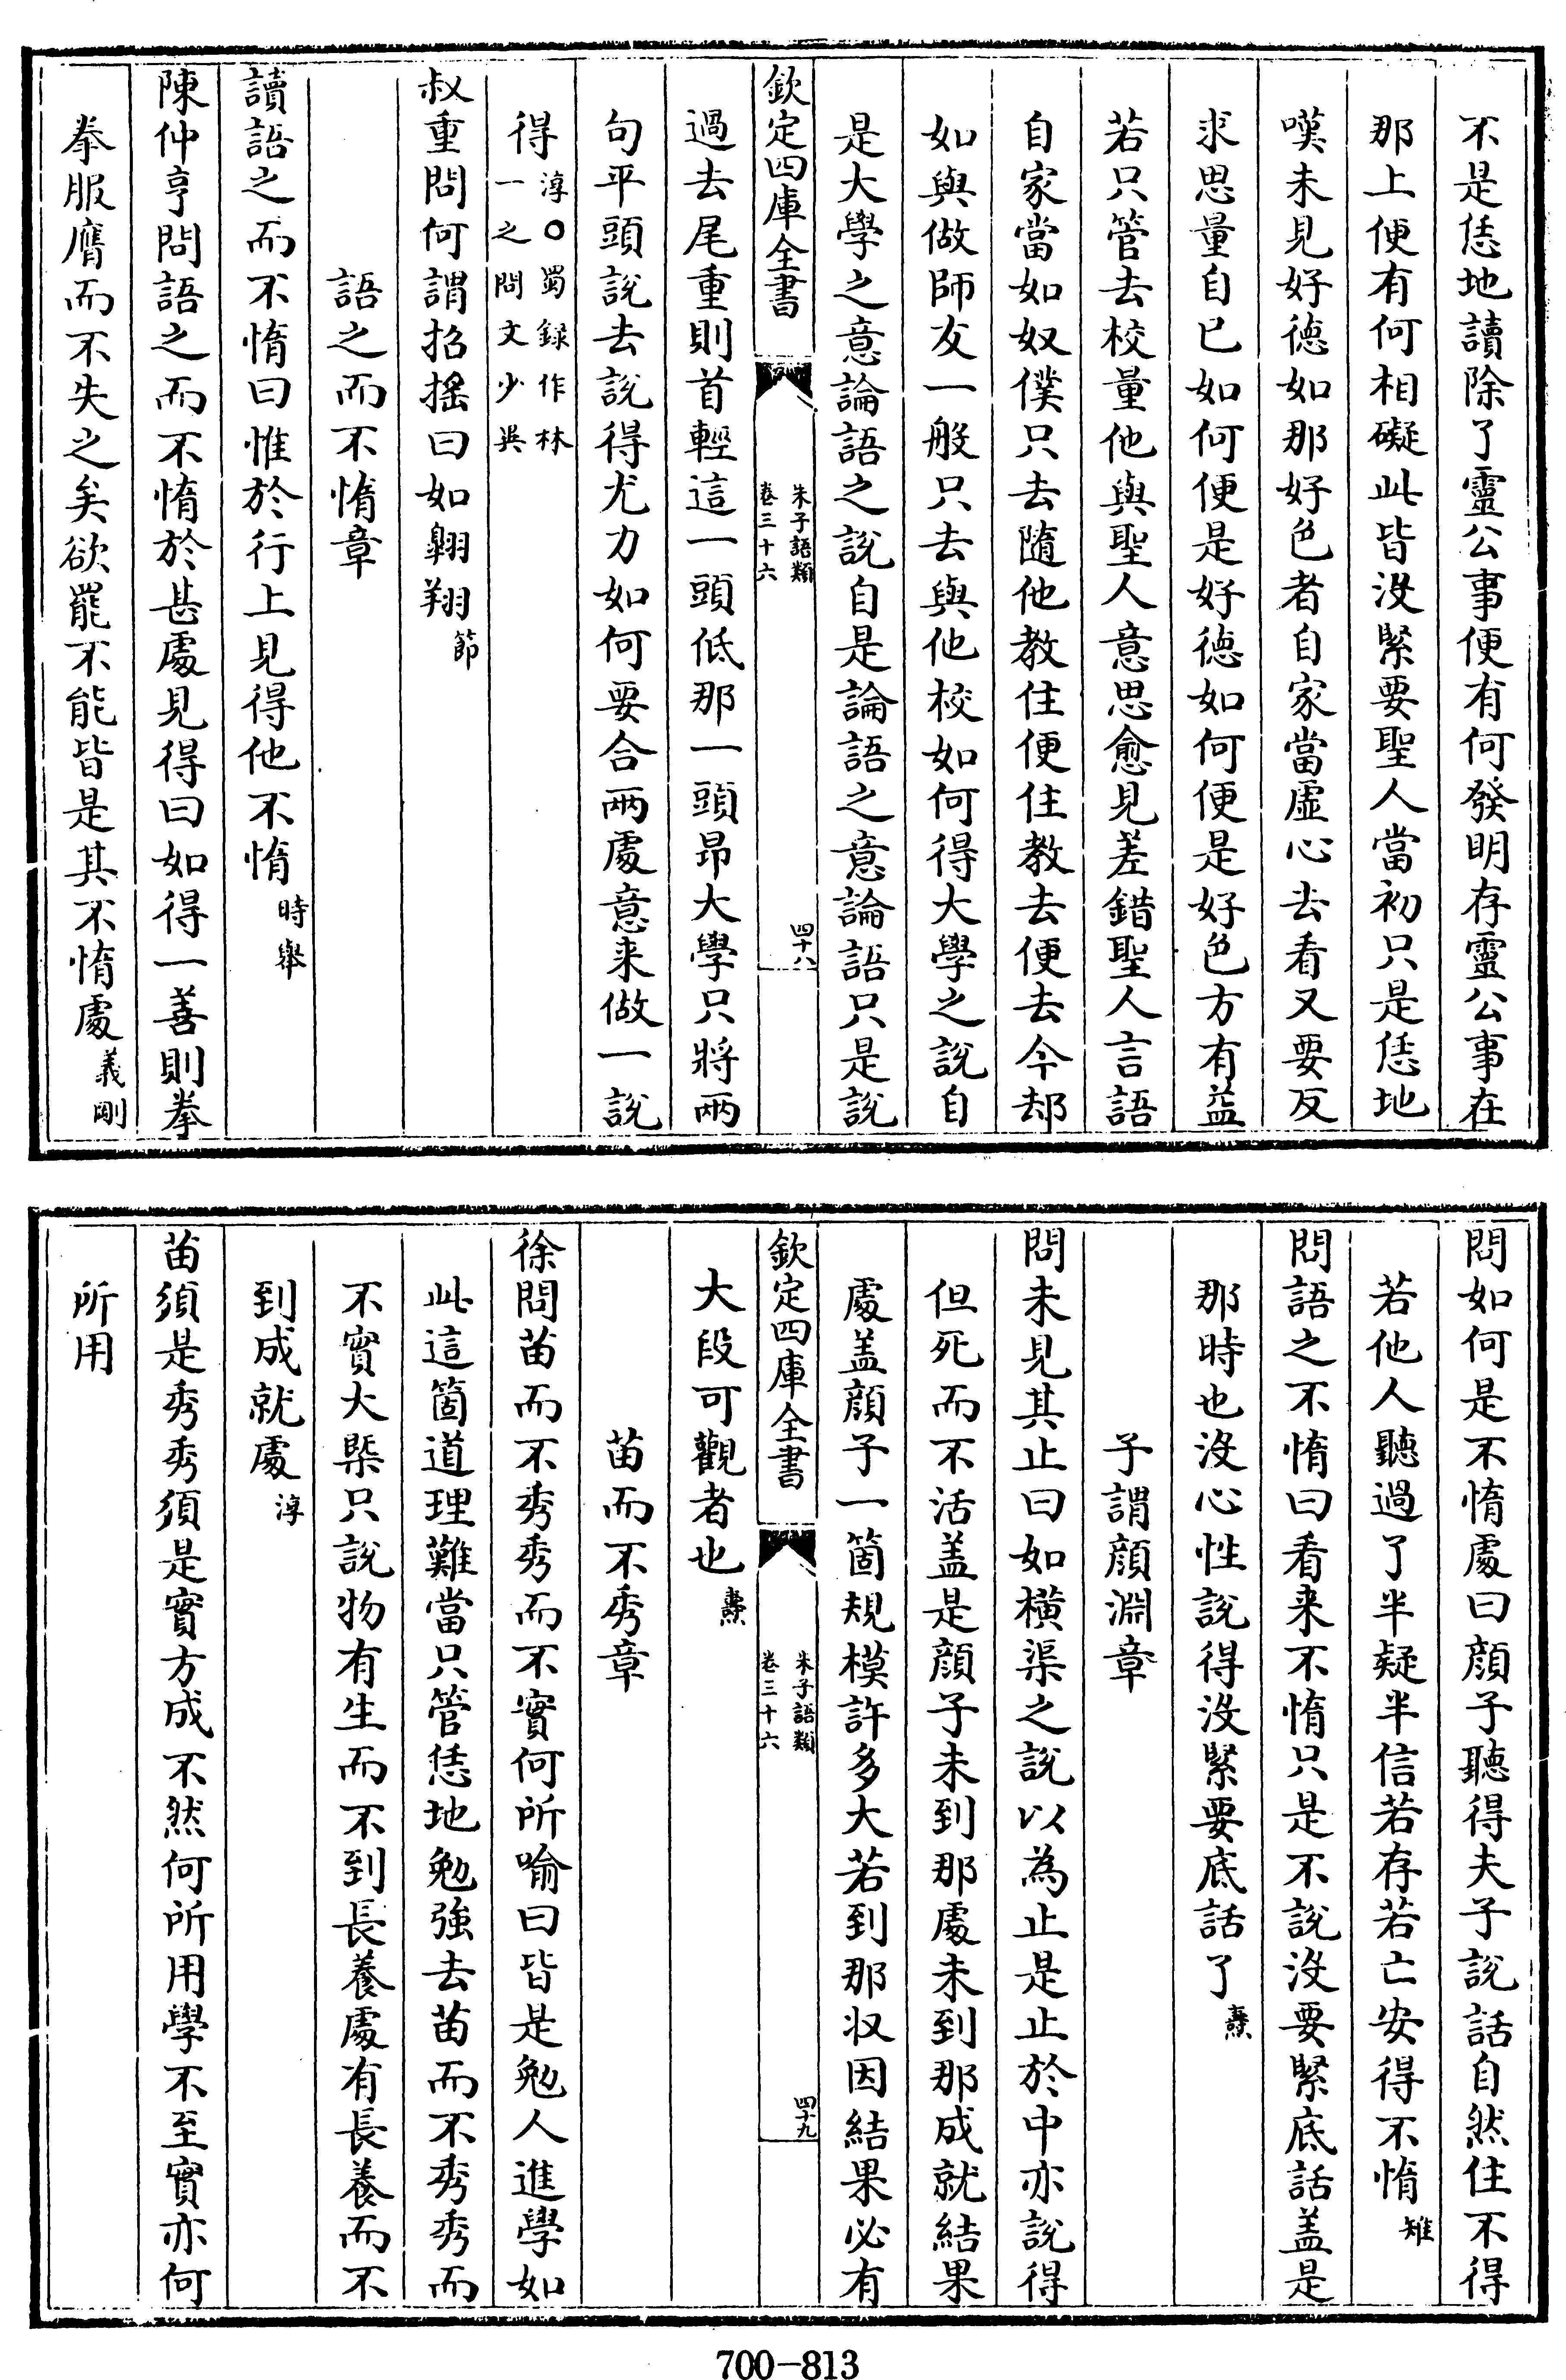 不是恁地讀除了靈公事便有何發明存靈公事在
那上便有何相礙此皆没緊要聖人當初只是恁地
嘆未見好徳如那好色者自家當虚心去看又要反
求思量自已如何便是好徳如何便是好色方有益
若只管去校量他與聖人意思愈見差錯聖人言語
自家當如奴僕只去隨他教住便住教去便去今却
如與做師友一般只去與他校如何得大學之説自
是大學之意論語之説自是論語之意論語只是説
欽定四庫全書
朱子語類
卷三十六
四十八
過去尾重則首輕這一頭低那一頭昂大學只將兩
句平頭説去説得尤力如何要合兩處意来做一説
得淳○蜀録作林一之問文少異
叔重問何謂招搖曰如翺翔節
語之而不惰章
讀語之而不惰曰惟於行上見得他不惰時舉
陳仲亨問語之而不惰於甚處見得曰如得一善則拳
拳服膺而不失之矣欲罷不能皆是其不惰處義剛
問如何是不惰處曰顔子聽得夫子説話自然住不得
若他人聽過了半疑半信若存若亡安得不惰雉
問語之不惰曰看来不惰只是不説没要緊底話盖是
那時也没心性説得没緊要底話了燾
子謂顔淵章
問未見其止曰如横渠之説以為止是止於中亦説得
但死而不活盖是顔子未到那處未到那成就結果
處盖顔子一箇規模許多大若到那収因結果必有
欽定四庫全書
朱子語類
卷三十六
四十九
大段可觀者也燾
苗而不秀章
徐問苗而不秀秀而不實何所喻曰皆是勉人進學如
此這箇道理難當只管恁地勉強去苗而不秀秀而
不實大槩只説物有生而不到長養處有長養而不
到成就處淳
苗須是秀秀須是實方成不然何所用學不至實亦何
所用
700-813